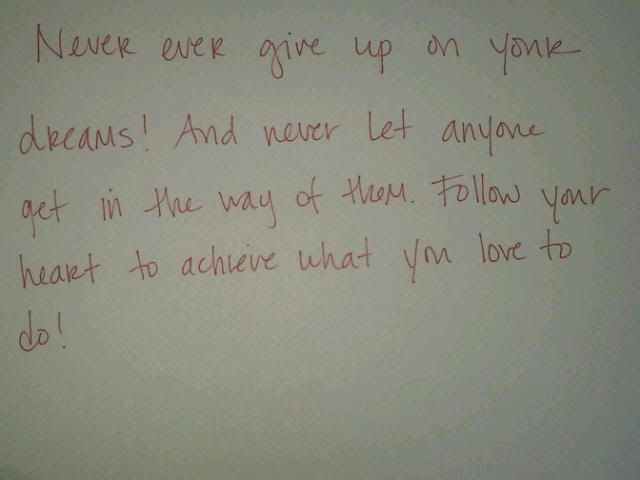 Never ever give up on your
dreams! And never let anyone
get in the way of them. Follow your
heart to achieve what you love to
do!